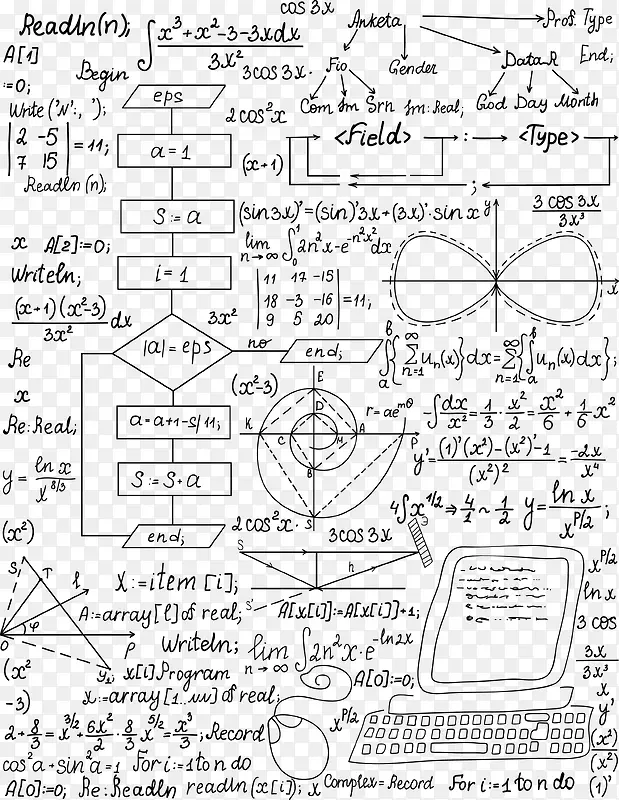 Readln(n);
∫ (x³+x²-3-3xdx)/(3x²)
cos 3x
Anketa
Prof. Type
A[1]
:=0;
Begin
3cos3x.
Fio
Gender
Data R
End;
Write ('N':, ');
eps
2cos²x
Com Im Srn
Im: Real;
God Day Month
|2 -5|
|7 15| = 11;
a=1
(x+1)
<Field> : <Type>
;
Readln (n);
S:=a
(sin3x)'=(sin)'3x+(3x)'·sin x
y
3 cos 3x / 3x³
x
A[2]:=0;
lim n→∞ ∫₀¹ 2n²x·e^(-n²x²) dx
Writeln;
i=1
|11 17 -15|
|18 -3 -16| = 11;
|9 5 20|
x
(x+1)(x²-3) / 3x² dx
3x²
|a|=eps
no
end;
∫ₐᵇ{∑ₙ₌₁^∞ uₙ(x)}dx=∑ₙ₌₁^∞{∫ₐᵇ uₙ(x)dx};
Re
(x²-3)
E
D
r=ae^(mθ)
x
Re: Real;
a=a+1-S/11;
K C M A P
B
S
-∫dx/x² = 1/3 · x²/2 = x²/6 + 1/6 x²
y'= ((1)'(x²)-(x²)'·1)/(x²)² = -2x/x⁴
y = ln x / x^(8/3)
S:=S+a
4∫x^(1/2) ⇒ 4/1 ~ 1/2
y= ln x / x^(P/2) ;
(x²)
end;
2cos²x.
3cos3x
Э
S
h
S'
S₁ T l
O φ P
y₁
X:=item [i];
x^(P/2)
A:=array[l] of real;
A[x[i]]:=A[x[i]]+1;
ln x
3 cos
Writeln;
lim n→∞ ∫2n²x·e^(-ln2x)
3x / 3x³
(x²
-3)
x[i] Program
A[0]:=0;
x
x:=array[1..uu) of real;
y'
2+8/3=x^(3/2)+6x²/2·8/3 x^(5/2)=x³/3; Record
x^(P/2)
(x²) / (x²)
cos²a+sin²a=1
For i:=1 to n do
A[0]:=0; Re: Readln readln(x[i]; x Complex=Record
For i:=1 to n do
(1)'